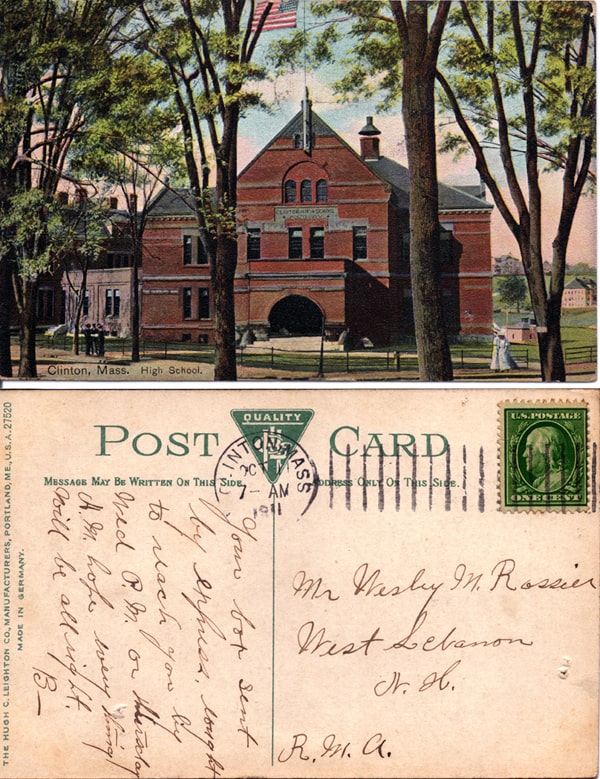 CLINTON HIGH SCHOOL
Clinton, Mass. High School.
POST CARD
QUALITY
MESSAGE MAY BE WRITTEN ON THIS SIDE.
ADDRESS ONLY ON THIS SIDE.
CLINTON, MASS
OCT
7- AM
1911
U.S. POSTAGE
ONE CENT
THE HUGH C. LEIGHTON CO., MANUFACTURERS, PORTLAND, ME., U.S.A. 27520
MADE IN GERMANY.
Your box sent
by express. ought
to reach you by
Wed P.M. or Thursday
A.M. hope everything
will be all right.
B—
Mr Wesley M. Rossier
West Lebanon
N. H.
R. M. A.